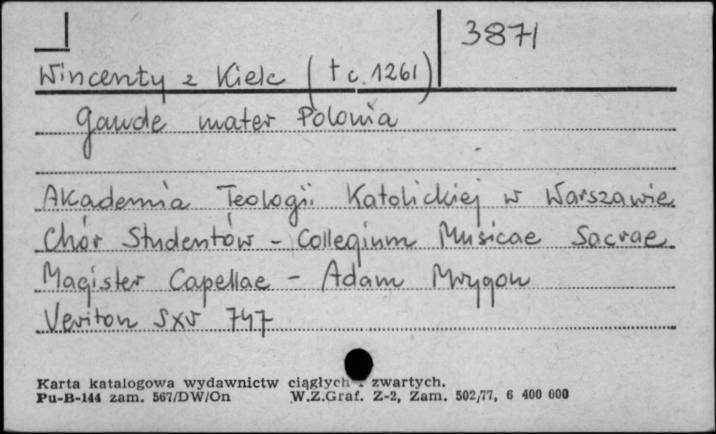 3871
Wincenty z Kielc († c. 1261)
Gaude mater Polonia
Akademia Teologii Katolickiej w Warszawie
Chór Studentów - Collegium Musicae Sacrae
Magister Capellae - Adam Mrygon
Veriton SXV 747
Karta katalogowa wydawnictw ciągłych i zwartych.
Pu-B-144 zam. 567/DW/On W.Z.Graf. Z-2, Zam. 502/77, 6 400 000